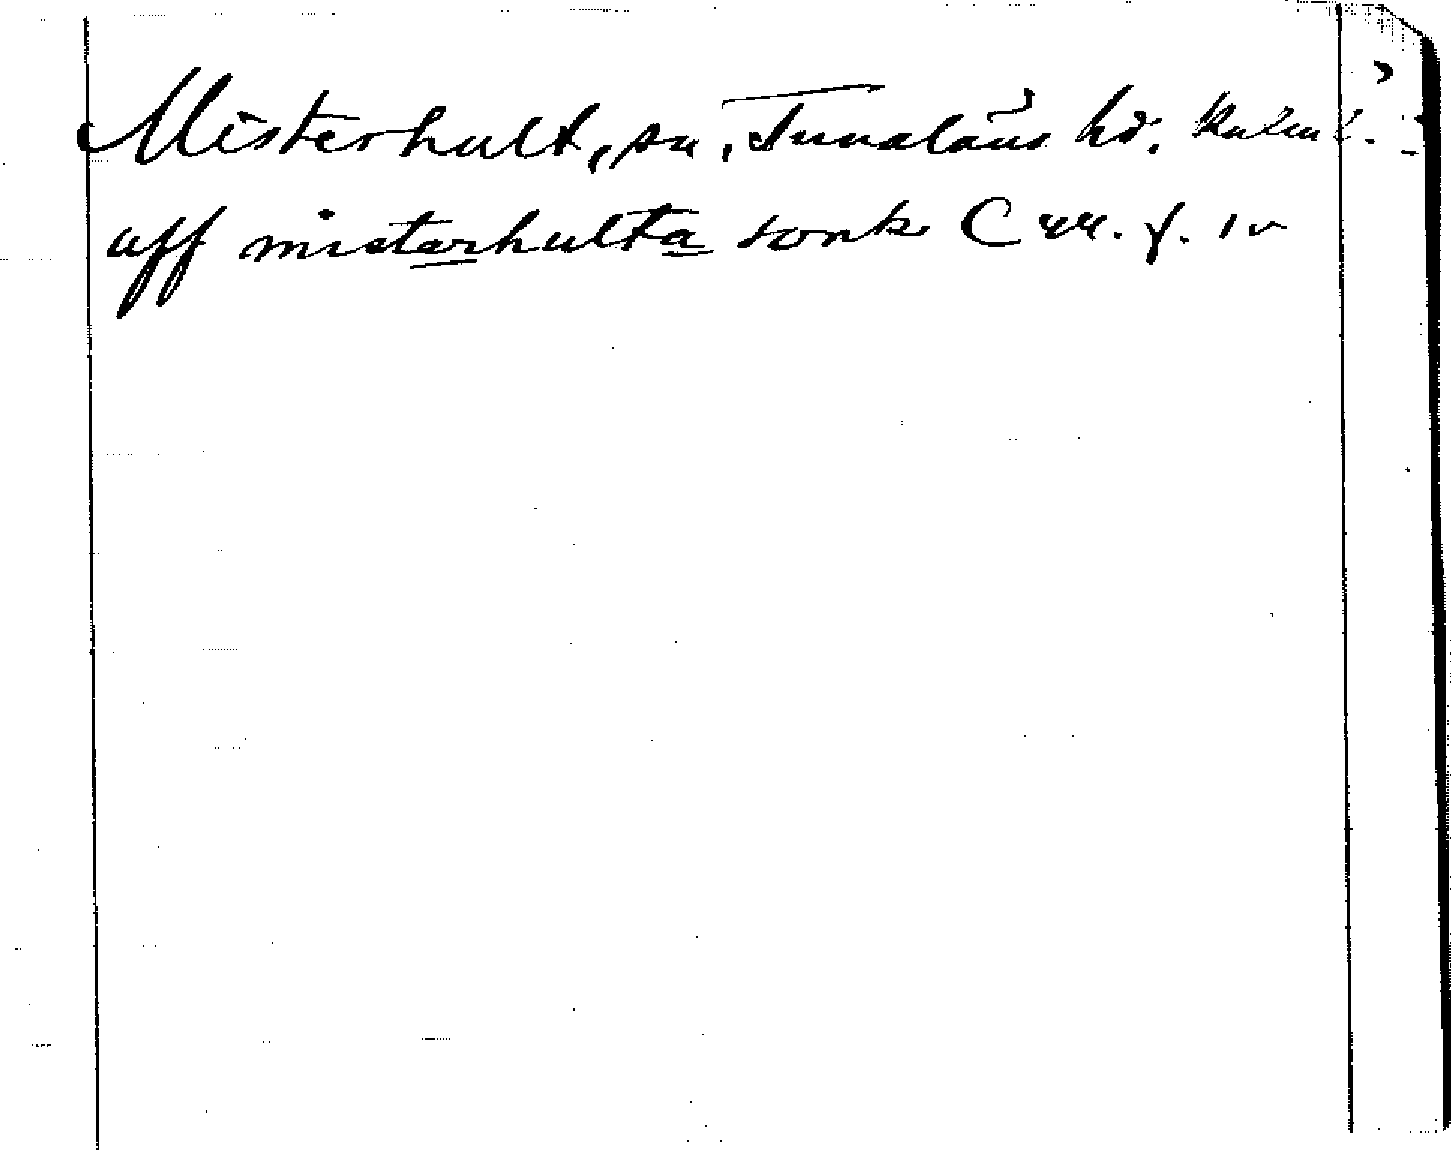 Misterhult, sn, Tunaläns hd. Kalm l.
aff misterhulta sonk C 44. f. 1v